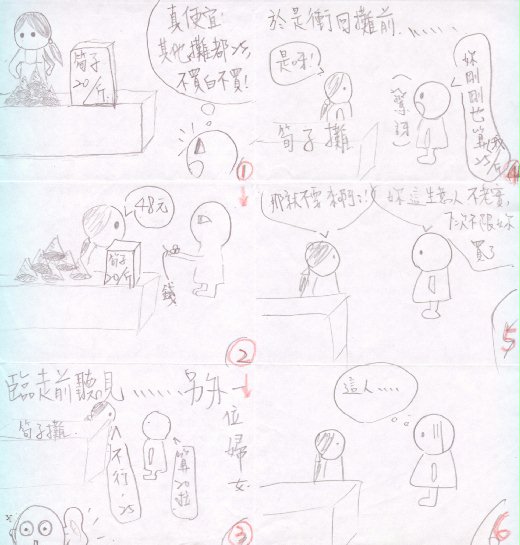 筍子
20/斤.
真便宜.
其他攤都25,
不買白不買!
1
48元
筍子
20/斤
錢
2
臨走前聽見......另外一
位婦女
筍子攤.
不行,25
算20啦
3
於是衝回攤前.......
是呀!
筍子攤
(驚訝)
妳剛剛也算我
25/斤
4
那就不要來啊!
妳這生意人不老實,
下次不跟妳
買了
5
這人....
6